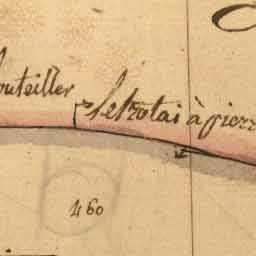 outeiller
Letrotai à pierr
460